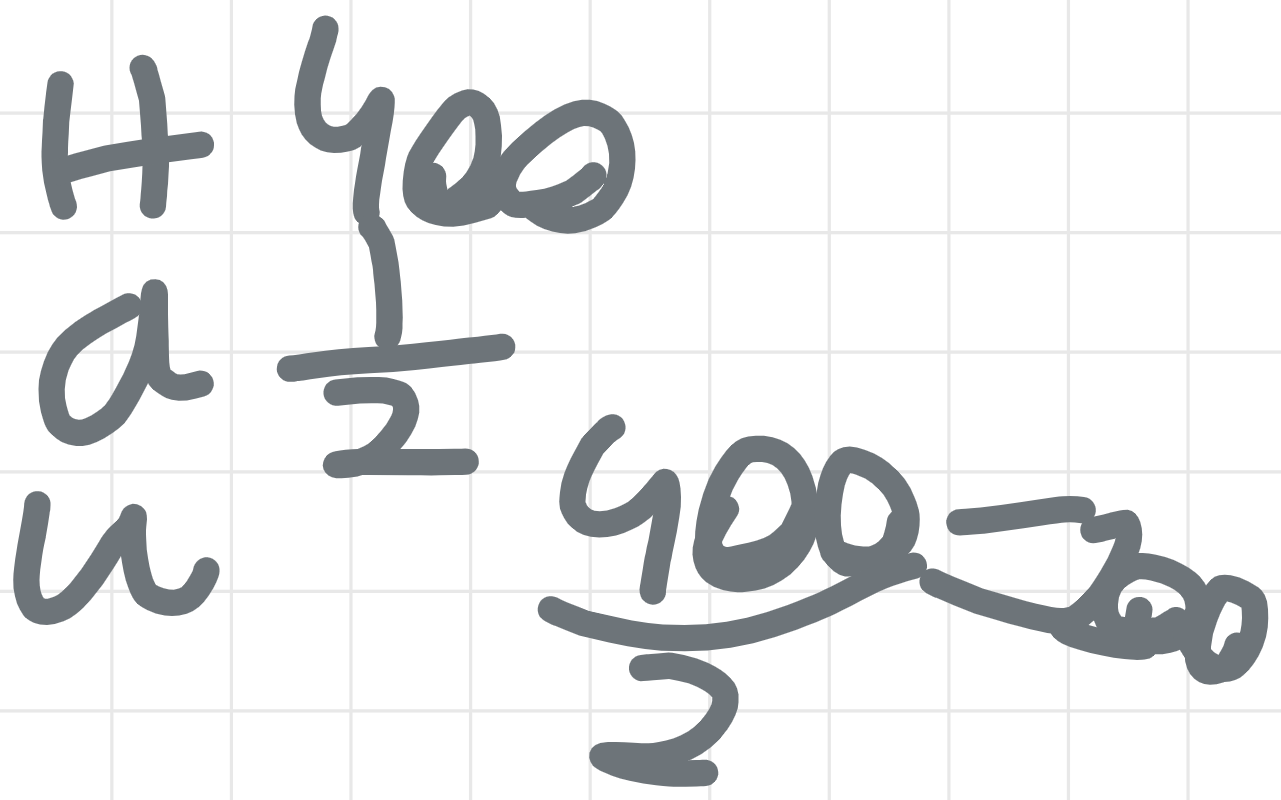 H 400
a 1
2
u 400 = 200
2